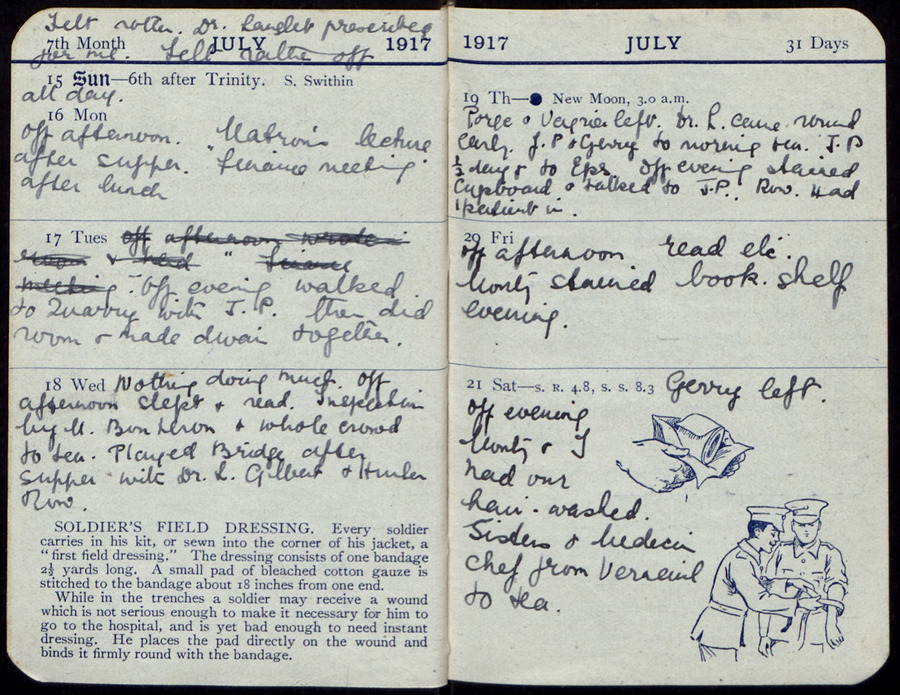 Felt rotten. Dr. Henslet prescribed
7th Month JULY 1917
for me. Felt rather off
15 Sun—6th after Trinity. S. Swithin
all day.
16 Mon
Off afternoon. "Matron's lecture
after supper. Finance meeting"
after lunch
17 Tues off afternoon wrote
room & read "Finance
meeting". Off evening walked
to Quarry with J.P. then did
room & made divan together.
18 Wed Nothing doing much. Off
afternoon slept & read. Inspection
by M. & whole crowd
to tea. Played Bridge after
supper with Dr. L. Gilbert & Hunter
Row.
SOLDIER'S FIELD DRESSING. Every soldier
carries in his kit, or sewn into the corner of his jacket, a
"first field dressing." The dressing consists of one bandage
2½ yards long. A small pad of bleached cotton gauze is
stitched to the bandage about 18 inches from one end.
While in the trenches a soldier may receive a wound
which is not serious enough to make it necessary for him to
go to the hospital, and is yet bad enough to need instant
dressing. He places the pad directly on the wound and
binds it firmly round with the bandage.
1917 JULY 31 Days
19 Th—● New Moon, 3.0 a.m.
left. Dr. L. came round
early. J.P & Gerry to morning tea. J.P
½ day & to Eps. Off evening stained
Cupboard & talked to J.P. Row. Had
1 patient in.
20 Fri
off afternoon read etc.
Monty stained book shelf
evening.
21 Sat—S. R. 4.8, S. S. 8.3 Gerry left.
Off evening
Monty & I
had our
hair-washed.
Sisters & Medecin
Chef from Verneuil
to tea.